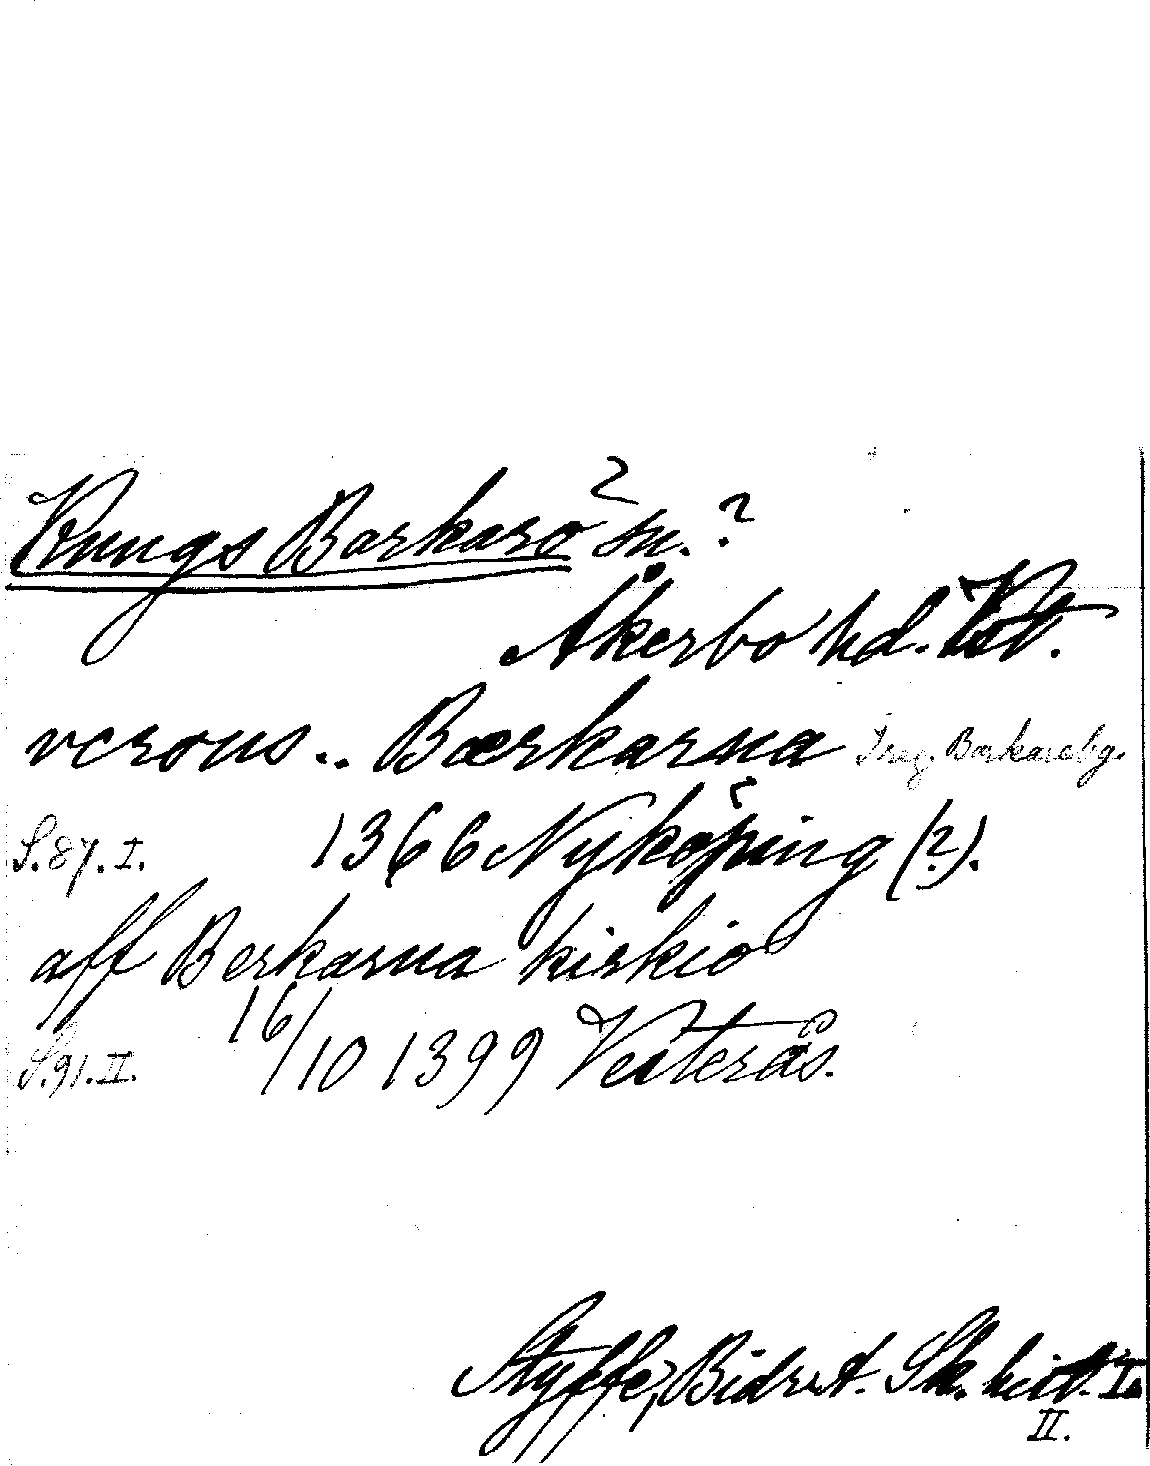 Kungs Barkarö ? sn. ?
Åkerbo hd. Vstm.
versus .. Bærkarna Freg. Barkarebg.
S. 87. I. 1366 Nyköping (?).
aff Berkarna kirkio
S. 91. II. 16/10 1399 Vesterås.
Styffe, Bidr. t. Sk. hist. I.
II.